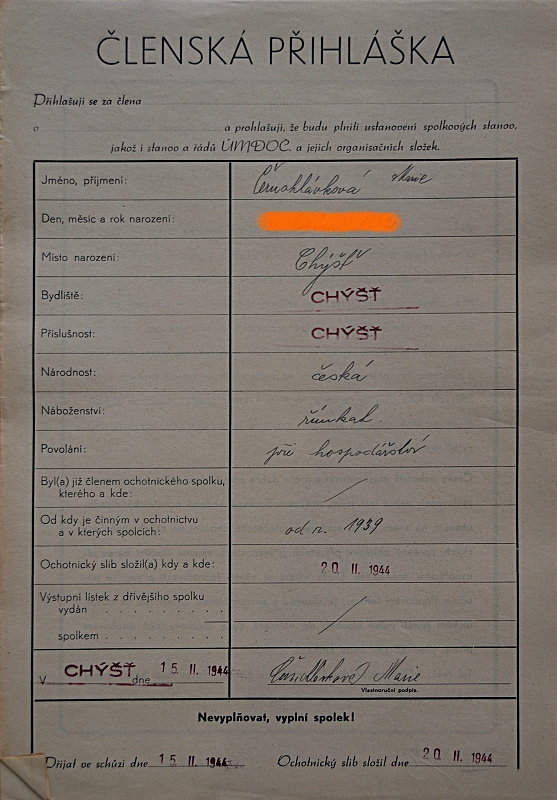 ČLENSKÁ PŘIHLÁŠKA
Přihlašuji se za člena
v
a prohlašuji, že budu plniti ustanovení spolkových stanov,
jakož i stanov a řádů ÚMDOČ. a jejich organisačních složek.
Jméno, příjmení: Černohlávková Marie
Den, měsíc a rok narození:
Místo narození: Chýšť
Bydliště: CHÝŠŤ
Příslušnost: CHÝŠŤ
Národnost: česká
Náboženství: římkat.
Povolání: při hospodářství
Byl(a) již členem ochotnického spolku,
kterého a kde: /
Od kdy je činným v ochotnictvu
a v kterých spolcích: od r. 1939
Ochotnický slib složil(a) kdy a kde: 20 II. 1944
Výstupní lístek z dřívějšího spolku
vydán . . . . . . . . . /
spolkem . . . . . . . .
V CHÝŠŤ dne 15 II. 1944 Marie
Vlastnoruční podpis.
Nevyplňovat, vyplní spolek!
Přijat ve schůzi dne 15 II. 1944 Ochotnický slib složil dne 20 II. 1944